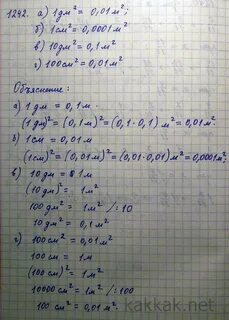 1242. а) 1 дм² = 0,01 м²;
б) 1 см² = 0,0001 м²;
в) 10 дм² = 0,1 м²;
г) 100 см² = 0,01 м²
Объяснение:
а) 1 дм = 0,1 м.
(1 дм)² = (0,1 м)² = (0,1·0,1) м² = 0,01 м²
б) 1 см = 0,01 м
(1 см)² = (0,01 м)² = (0,01·0,01) м² = 0,0001 м²;
в) 10 дм = 1 м
(10 дм)² = 1 м²
100 дм² = 1 м² /:10
10 дм² = 0,1 м²
г) 100 см² = 0,01 м²
100 см = 1 м
(100 см)² = 1 м²
10000 см² = 1 м² /:100
100 см² = 0,01 м².
kakkak.net